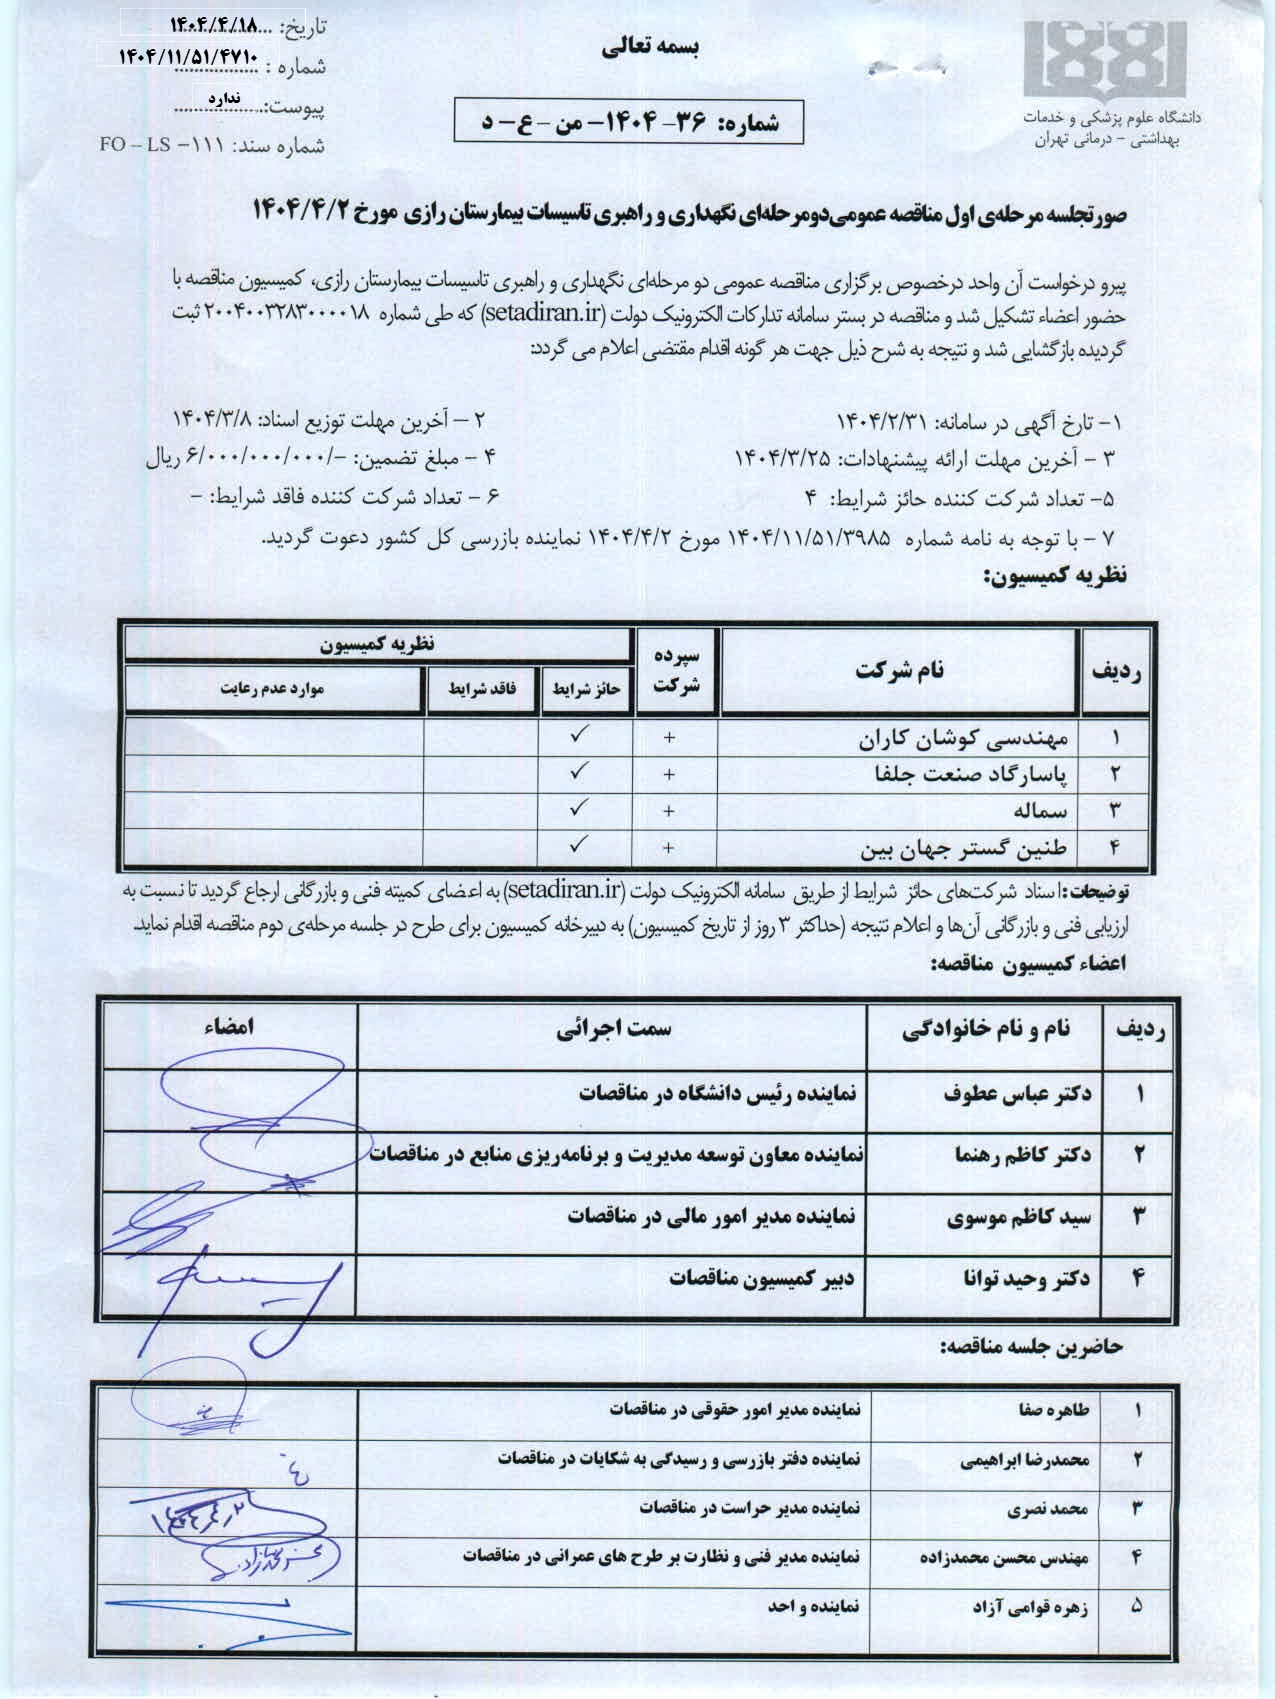 بسمه تعالی
تاریخ: ۱۴۰۴/۴/۱۸
شماره : ۱۴۰۴/۱۱/۵۱/۴۷۱۰
پیوست: ندارد
شماره سند: FO – LS –۱۱۱
دانشگاه علوم پزشکی و خدمات
بهداشتی – درمانی تهران
شماره: ۳۶- ۱۴۰۴- من – ع – د
صورتجلسه مرحله‌ی اول مناقصه عمومی‌دومرحله‌ای نگهداری و راهبری تاسیسات بیمارستان رازی مورخ ۱۴۰۴/۴/۲
پیرو درخواست آن واحد درخصوص برگزاری مناقصه عمومی دو مرحله‌ای نگهداری و راهبری تاسیسات بیمارستان رازی، کمیسیون مناقصه با
حضور اعضاء تشکیل شد و مناقصه در بستر سامانه تدارکات الکترونیک دولت (setadiran.ir) که طی شماره ۲۰۰۴۰۰۳۲۸۳۰۰۰۰۱۸ ثبت
گردیده بازگشایی شد و نتیجه به شرح ذیل جهت هر گونه اقدام مقتضی اعلام می گردد:
۱– تارخ آگهی در سامانه: ۱۴۰۴/۲/۳۱ ۲ – آخرین مهلت توزیع اسناد: ۱۴۰۴/۳/۸
۳ – آخرین مهلت ارائه پیشنهادات: ۱۴۰۴/۳/۲۵ ۴ – مبلغ تضمین: –/۶/۰۰۰/۰۰۰/۰۰۰ ریال
۵– تعداد شرکت کننده حائز شرایط: ۴ ۶ – تعداد شرکت کننده فاقد شرایط: –
۷ – با توجه به نامه شماره ۱۴۰۴/۱۱/۵۱/۳۹۸۵ مورخ ۱۴۰۴/۴/۲ نماینده بازرسی کل کشور دعوت گردید.
نظریه کمیسیون:
ردیف نام شرکت سپرده شرکت نظریه کمیسیون
حائز شرایط فاقد شرایط موارد عدم رعایت
۱ مهندسی کوشان کاران + ✓
۲ پاسارگاد صنعت جلفا + ✓
۳ سماله + ✓
۴ طنین گستر جهان بین + ✓
توضیحات: اسناد شرکت‌های حائز شرایط از طریق سامانه الکترونیک دولت (setadiran.ir) به اعضای کمیته فنی و بازرگانی ارجاع گردید تا نسبت به
ارزیابی فنی و بازرگانی آن‌ها و اعلام نتیجه (حداکثر ۳ روز از تاریخ کمیسیون) به دبیرخانه کمیسیون برای طرح در جلسه مرحله‌ی دوم مناقصه اقدام نماید.
اعضاء کمیسیون مناقصه:
ردیف نام و نام خانوادگی سمت اجرائی امضاء
۱ دکتر عباس عطوف نماینده رئیس دانشگاه در مناقصات
۲ دکتر کاظم رهنما نماینده معاون توسعه مدیریت و برنامه‌ریزی منابع در مناقصات
۳ سید کاظم موسوی نماینده مدیر امور مالی در مناقصات
۴ دکتر وحید توانا دبیر کمیسیون مناقصات
حاضرین جلسه مناقصه:
۱ طاهره صفا نماینده مدیر امور حقوقی در مناقصات
۲ محمدرضا ابراهیمی نماینده دفتر بازرسی و رسیدگی به شکایات در مناقصات
۳ محمد نصری نماینده مدیر حراست در مناقصات
۴ مهندس محسن محمدزاده نماینده مدیر فنی و نظارت بر طرح های عمرانی در مناقصات
۵ زهره قوامی آزاد نماینده واحد